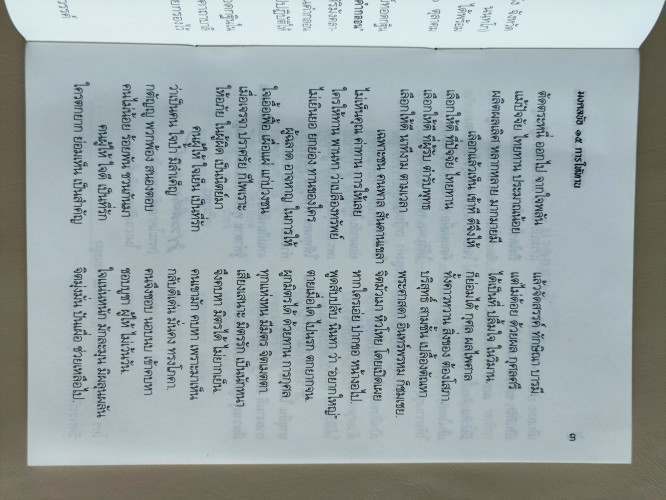 มงคลข้อ ๑๕ การให้ทาน
ตัดตระหนี่ ออกไป จากใจพลัน แล้วจัดสรรค์ ทักษิณา บารมี.
แม้ปัจจัย ไทยทาน ประมาณน้อย แต่ไม่ด้อย ด้วยผล กุศลศรี
ผลิตผลเลิศ หลากหลาย มากมายมี ได้เป็นที่ ปลื้มใจ ในวิมาน.
เลือกแล้วเห็น เข้าที ดีจึงให้ ก็ย่อมได้ กุศล ผลไพศาล
เลือกให้ดี ที่ปัจจัย ไทยทาน ทั้งคาวหวาน สิ่งของ ต้องโสภา.
เลือกให้ดี ที่ผู้รับ ตำรับพุทธ บริสุทธิ์ สามขั้น เปลื้องตัณหา
เลือกให้ดี นาทีงาม ตามเวลา พระศาสดา อินทร์พรหม ก็ชมเชย.
เฉพาะชน คนพาล สันดานเขลา จิตมัวเมา หิวโหย โดยเปิดเผย
ไม่เห็นคุณ ค่าทาน การให้เลย หากใครเอ่ย ปากขอ หน้างอไป.
ใครให้ทาน พาลหา ว่าเปลืองทรัพย์ พูดสับปลับ นินทา ว่า "อยากใหญ่"
ไม่ยินยอ ยกย่อง ทานของใคร ตายเมื่อใด ไปนรก ตกยากจน.
ผู้ฉลาด อาจหาญ ในการให้ ผูกมิตรได้ ด้วยทาน การกุศล
ใจเอื้อเฟื้อ เผื่อแผ่ แก่ปวงชน ทุกแห่งหน มีมิตร จิตเมตตา.
เมื่อเจรจา ปราศรัย ก็ไพเราะ เสียงเสนาะ มิตรรัก เป็นนักหนา
ให้อภัย ในผู้ผิด เป็นนิตย์มา จึงคบหา มิตรได้ ไม่ยากเย็น.
คนผู้ให้ ใจเย็น เป็นที่รัก คนเขามัก คบหา เพราะมาเห็น
ว่าเป็นคน ใจป้ำ มิลำเค็ญ กลับดีเด่น มั่นคง ทรงโภคา.
กตัญญู พวกพ้อง สนองตอบ คนจึงชอบ นอบนบ เข้าคบหา
คนไม่น้อย ร้อยพัน ชวนกันมา ชอบบูชา ผู้ให้ ไม่เว้นวัน.
คนผู้ให้ ใจดี เป็นที่รัก ใจแน่นหนัก มักละมุน มิผลุนผลัน
ใครตกยาก ย่อมเห็น เป็นสำคัญ จิตมุ่งมั่น ปันเผื่อ ช่วยเหลือไป.